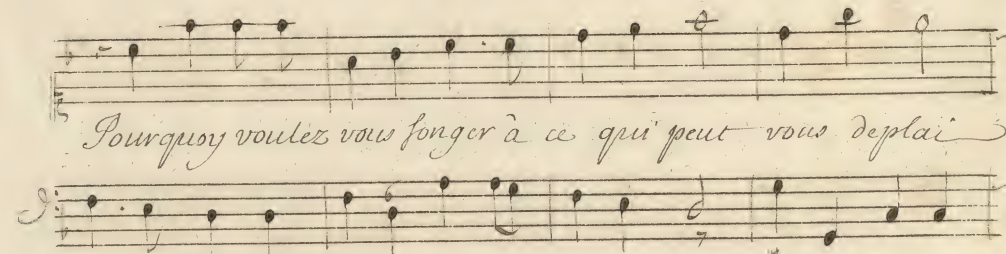 Pourquoy voulez vous songer à ce qui peut vous deplai
6
7